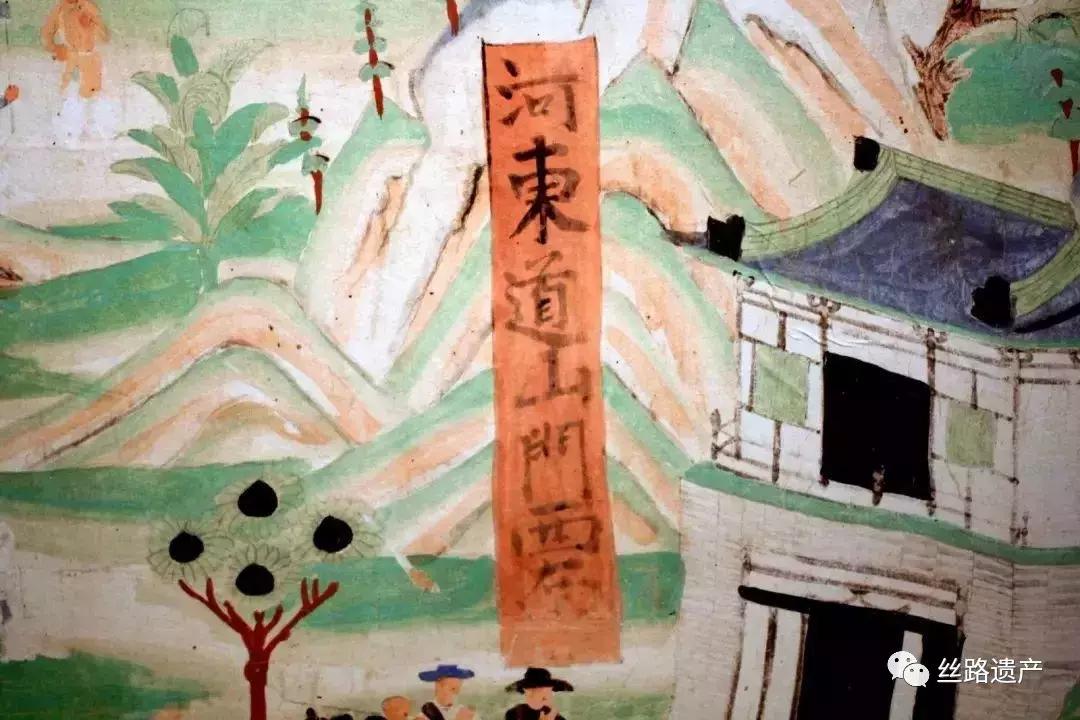 河東道山門西南
丝路遗产